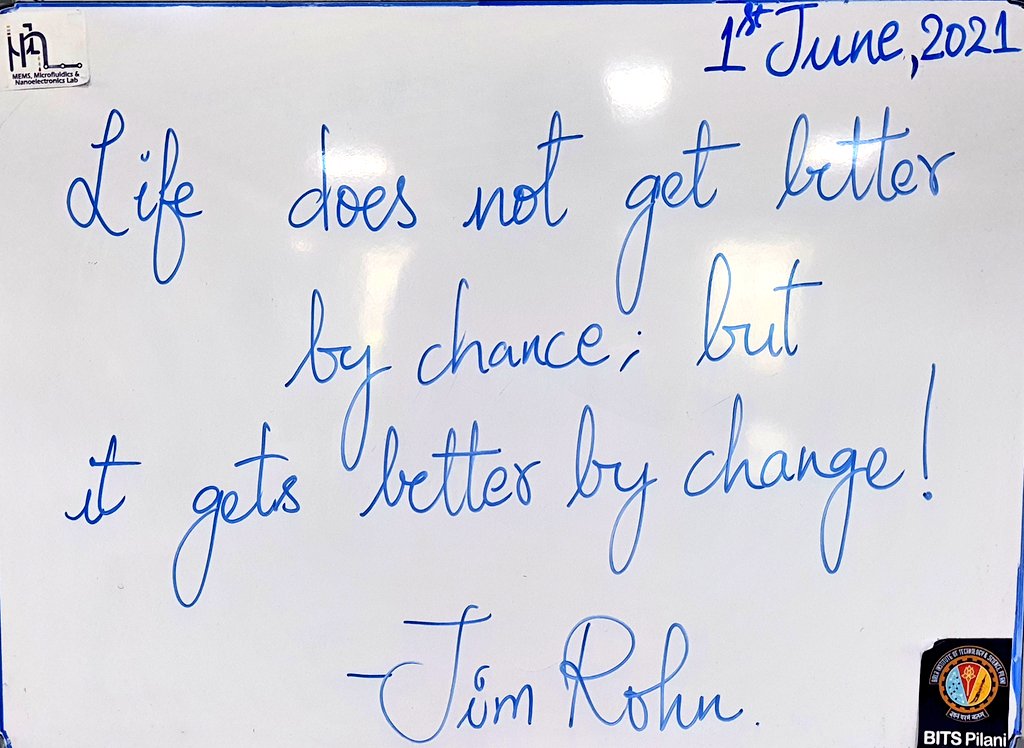 MEMS, Microfluidics &
Nanoelectronics Lab
1st June, 2021
Life does not get better
by chance; but
it gets better by change!
-Jim Rohn.
BIRLA INSTITUTE OF TECHNOLOGY & SCIENCE PILANI
BITS Pilani